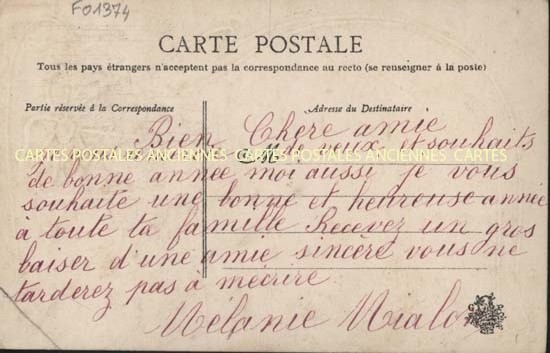 F01374
CARTE POSTALE
Tous les pays étrangers n'acceptent pas la correspondance au recto (se renseigner à la poste)
Partie réservée à la Correspondance
Adresse du Destinataire
Bien Chere amie
de veux et souhaits
CARTES POSTALES ANCIENNES CARTES POSTALES ANCIENNES CARTES
de bonne année moi aussi je vous
souhaite une bonne et heureuse année
à toute ta famille Recevez un gros
baiser d'une amie sincère vous ne
tarderez pas à mécrire
Mélanie